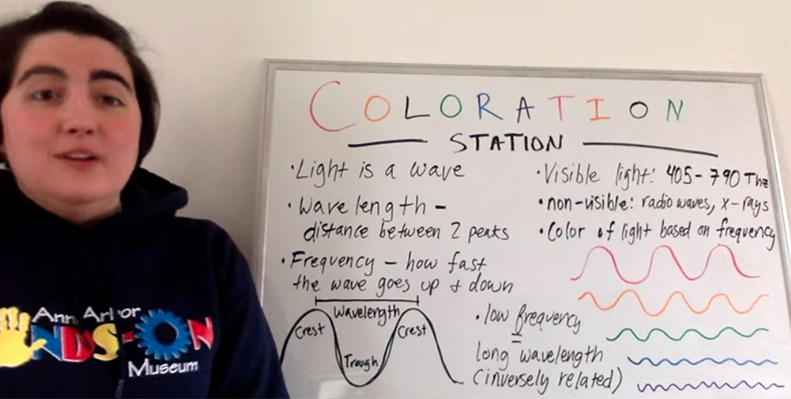 COLORATION
STATION
• Light is a wave
• Wavelength -
distance between 2 peaks
• Frequency - how fast
the wave goes up + down
Wavelength
Crest
Crest
Trough
• Visible light: 405-790 THz
• non-visible: radio waves, x-rays
• Color of light based on frequency
• low frequency
=
long wavelength
(inversely related)
Ann Arbor
NDS-ON
Museum